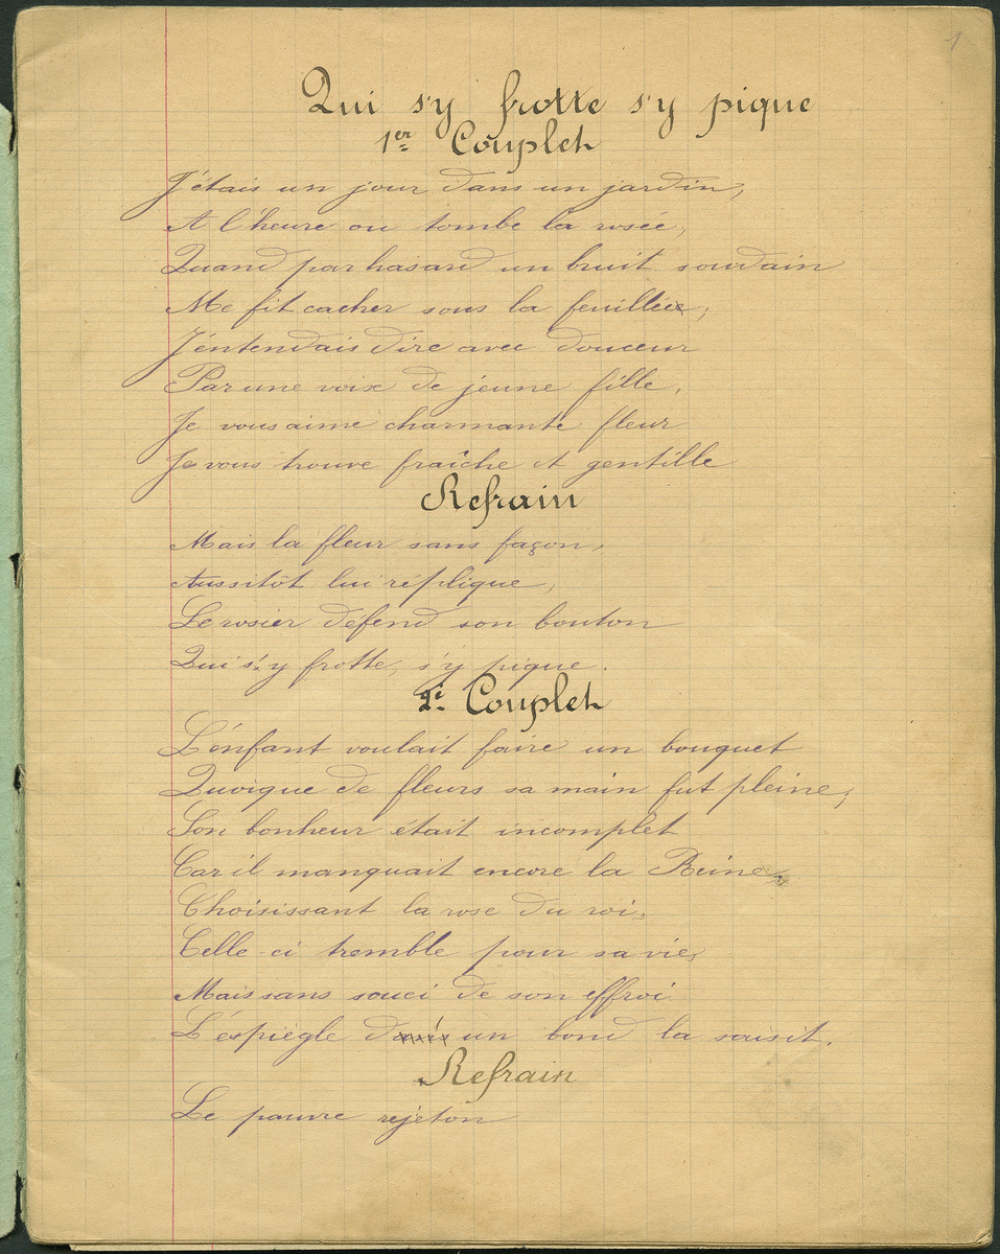 1
Qui s'y frotte s'y pique
1er Couplet
J'étais un jour dans un jardin,
A l'heure ou tombe la rosée,
Quand par hasard un bruit soudain
Me fit cacher sous la feuillée,
J'éntendais dire avec douceur
Par une voix de jeune fille,
Je vous aime charmante fleur
Je vous trouve fraîche et gentille
Refrain
Mais la fleur sans façon,
Aussitôt lui réplique,
Le rosier défend son bouton
Qui s'y frotte, s'y pique.
2e Couplet
L'énfant voulait faire un bouquet
Quoique de fleurs sa main fut pleine,
Son bonheur était incomplet
Car il manquait encore la Reine
Choisissant la rose du roi,
Celle-ci tremble pour sa vie,
Mais sans souci de son effroi
L'éspiègle d un bond la saisit.
Refrain
Le pauvre rejeton